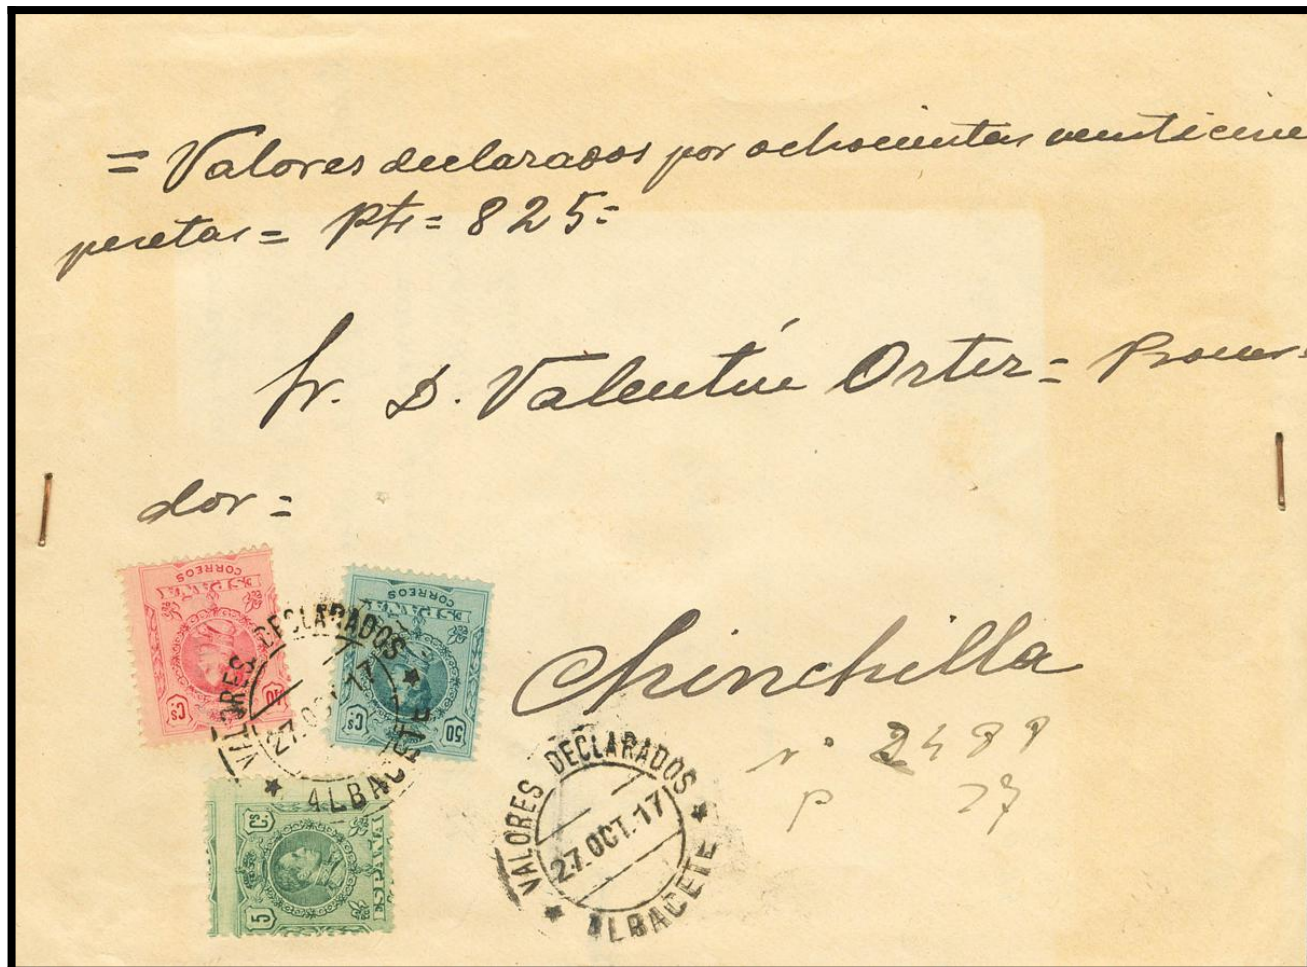 = Valores declarados por ochocientas veinticinc
pesetas = Pts = 825 =
Sr. D. Valentín Ortiz = Procur=
dor =
CORREOS
ESPAÑA
10 Cs
CORREOS
ESPAÑA
50 Cs
VALORES DECLARADOS
27.OCT.17
ALBACETE
Chinchilla
nº 2499
P 27
5 Cs.
ESPAÑA
VALORES DECLARADOS
27.OCT.17
ALBACETE